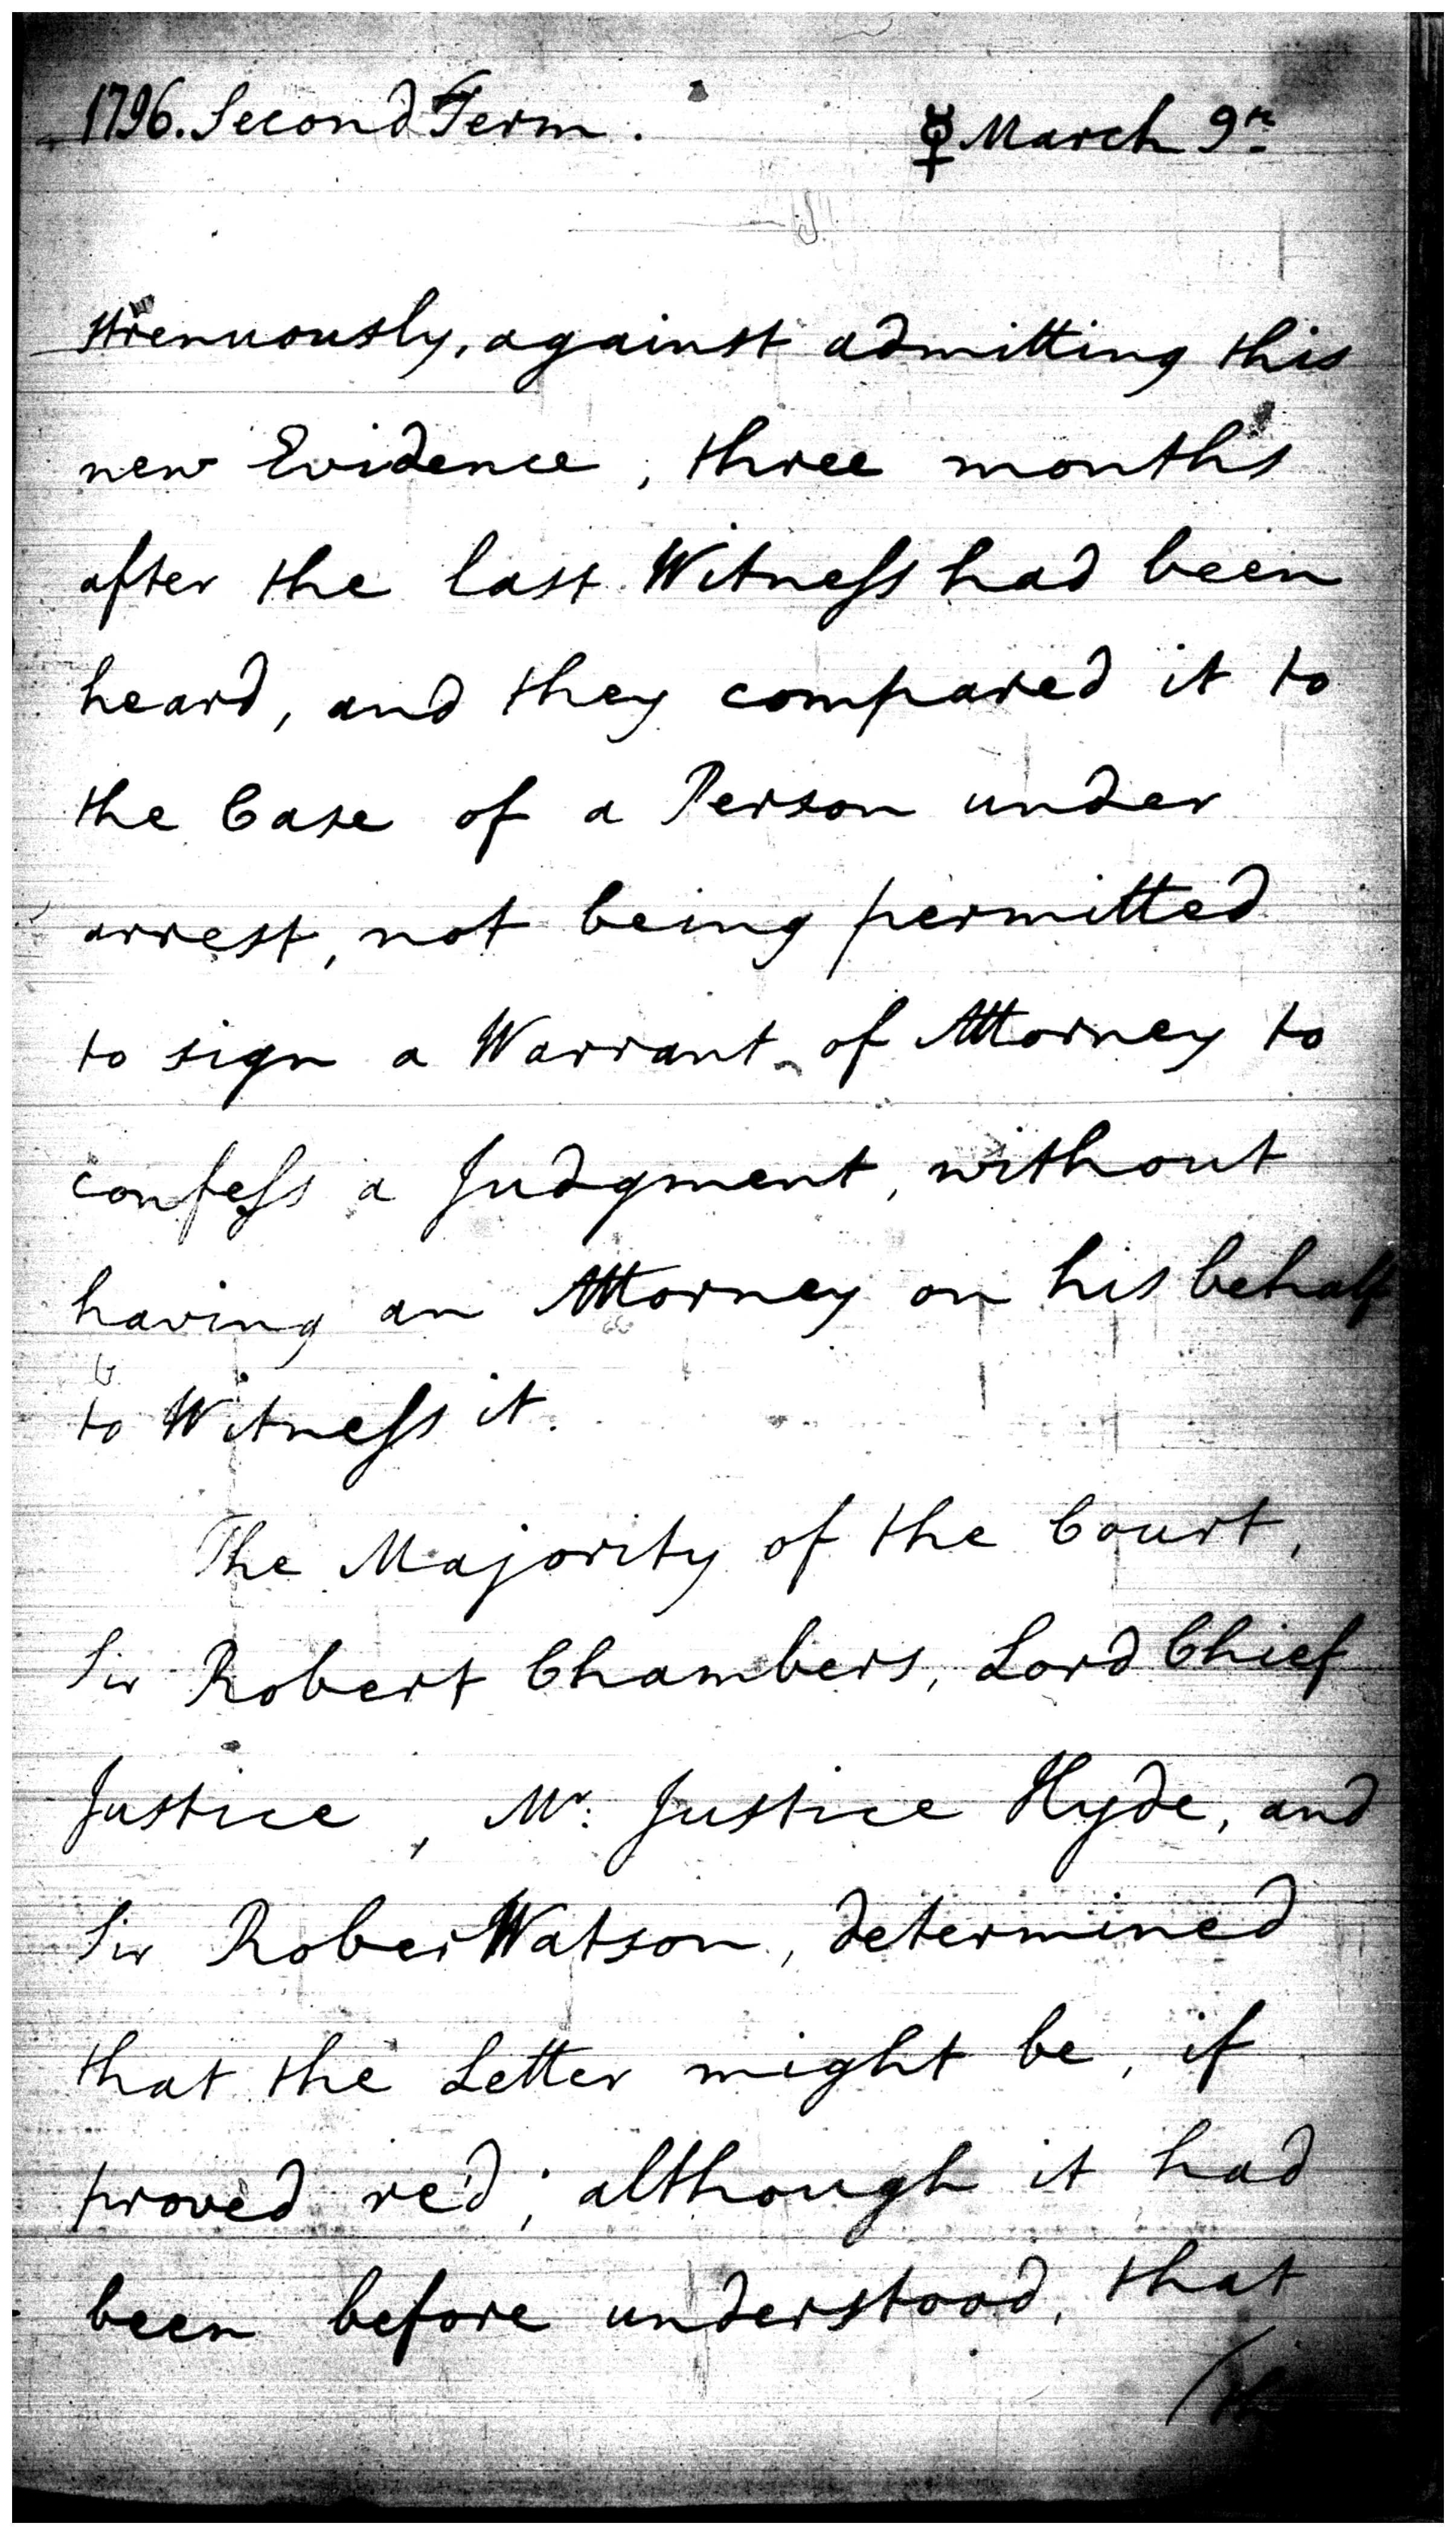 1796. Second Term. ☿ March 9th
strenuously, against admitting this
new Evidence, three months
after the last Witness had been
heard, and they compared it to
the Case of a Person under
arrest, not being permitted
to sign a Warrant of Attorney to
confess a Judgment, without
having an Attorney on his behalf
to Witness it.
The Majority of the Court,
Sir Robert Chambers, Lord Chief
Justice, Mr. Justice Hyde, and
Sir Rober Watson, determined
that the Letter might be, if
proved re'd; although it had
been before understood, that